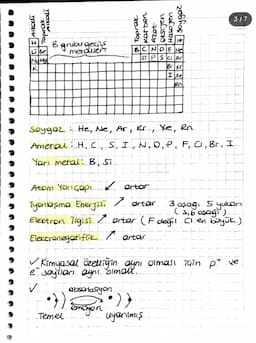 3/7
Alkali
Toprak Alkali
Toprak
Karbon
Azot
Soygaz
H
B grubu geçiş
metalleri
B C N O F Ne
Si P S Cl Ar
Br Kr
I Xe
Rn
K
Soygaz : He, Ne, Ar, Kr, Xe, Rn
Ametal : H, C, S, I, N, O, P, F, Cl, Br, I
Yarı metal : B, Si
Atom Yarıçapı ↙ artar
İyonlaşma Enerjisi ↗ artar 3 aşağı 5 yukarı
Elektron ilgisi ↗ artar (F değil Cl en büyük)
Elektronegatiflik ↗ artar
✓ Kimyasal özelliğin aynı olması için p⁺ ve
e⁻ sayıları aynı olmalı.
✓
absorbsiyon
emisyon
Temel uyarılmış